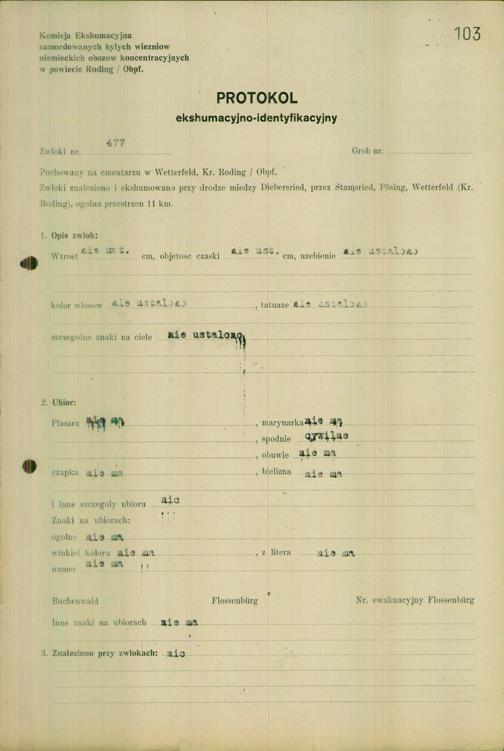 103
Komisja Ekshumacyjna
zamordowanych byłych wiezniow
niemieckich obozow koncentracyjnych
w powiecie Roding / Obpf.
PROTOKOL
ekshumacyjno-identyfikacyjny
Zwłoki nr. 477 Grob nr.
Pochowany na cmentarzu w Wetterfeld, Kr. Roding / Obpf.
Zwłoki znaleziono i ekshumowano przy drodze miedzy Diebersried, przez Stamsried, Pösing, Wetterfeld (Kr.
Roding), ogolna przestrzen 11 km.
1. Opis zwłok:
Wzrost nie ust. cm, objetosc czaski nie ust. cm, uzebienie nie ustalono
kolor włosow nie ustalono , tatuaze nie ustalono
szczegolne znaki na ciele nie ustalono
2. Ubior:
Płaszcz nie ma , marynarka nie ma
, spodnie cywilne
, obuwie nie ma
czapka nie ma , bielizna nie ma
i inne szczegoly ubioru nic
Znaki na ubiorach:
ogolne nie ma
winkiel koloru nie ma , z litera nie ma
numer nie ma
Buchenwald Flossenbürg Nr. ewakuacyjny Flossenbürg
Inne znaki na ubiorach nie ma
3. Znaleziono przy zwłokach: nic